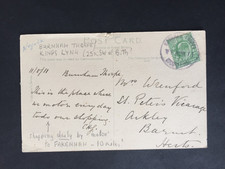 POST CARD
BURNHAM THORPE
KINGS LYNN
11/8/11 Burnham Thorpe,
This is the place where
we motor every day
to do our shopping.
shopping daily by "motor"
to FAKENHAM
Mrs Wrenford
St. Peter's Vicarage
Arkley
Barnet
Herts